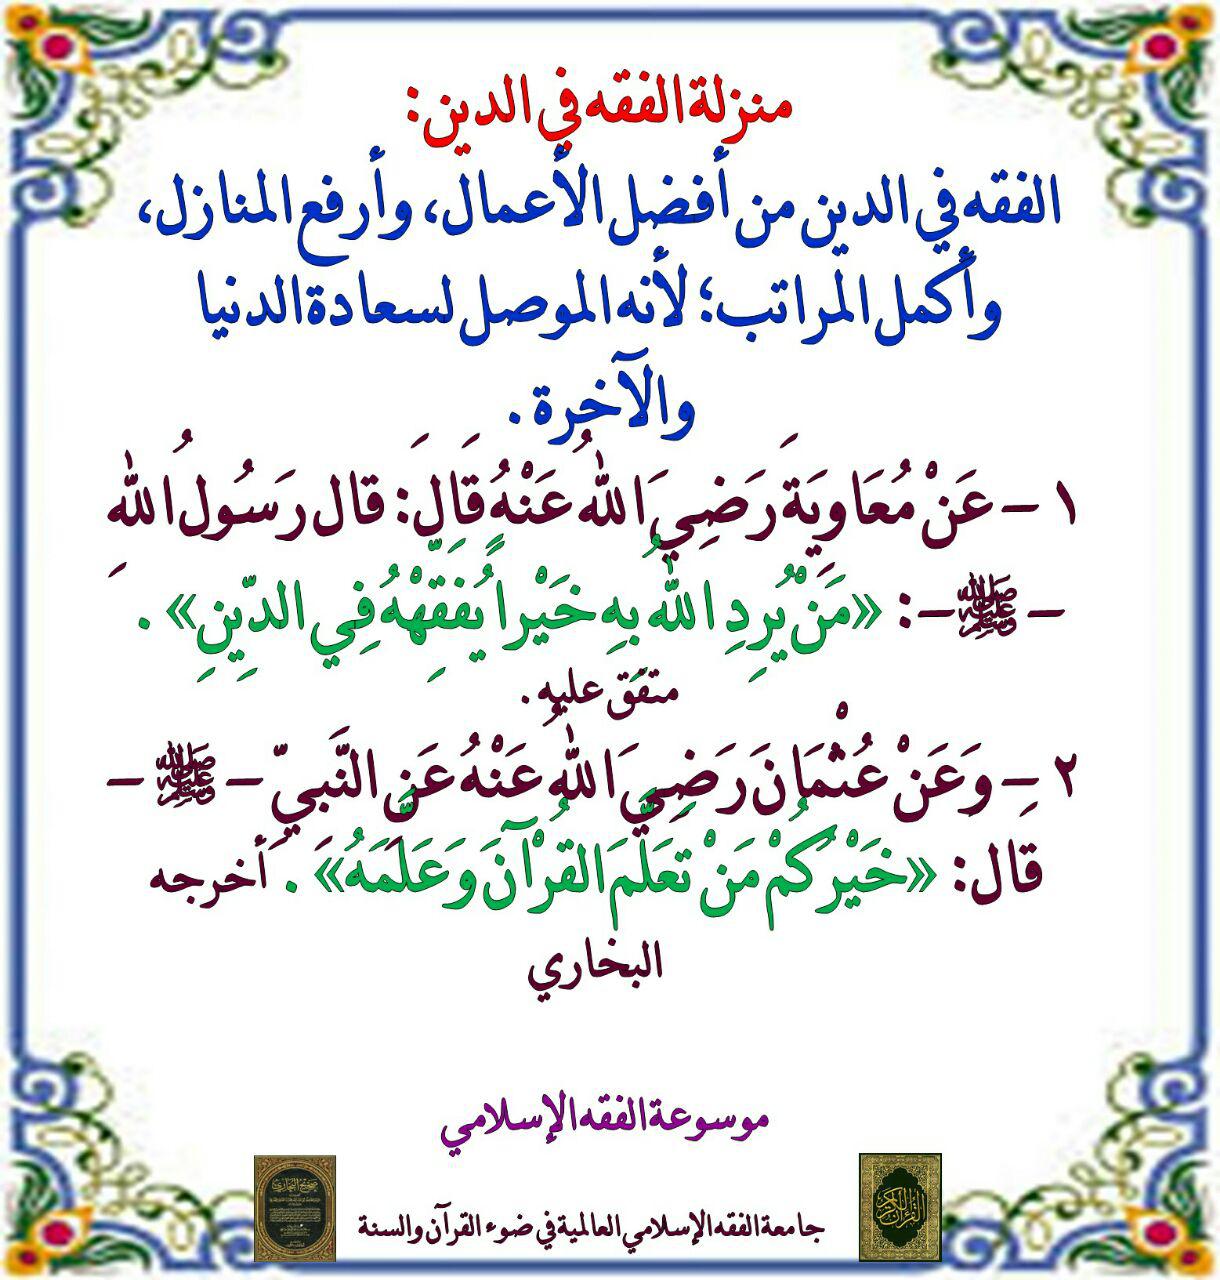 منزلة الفقه في الدين:
الفقه في الدين من أفضل الأعمال، وأرفع المنازل،
وأكمل المراتب؛ لأنه الموصل لسعادة الدنيا
والآخرة .
١ – عَنْ مُعَاوِيَةَ رَضِيَ اللهُ عَنْهُ قَالَ: قال رَسُولُ اللهِ
– ﷺ –: «مَنْ يُرِدِ اللهُ بِهِ خَيْراً يُفَقِّهْهُ فِي الدِّينِ» .
متفق عليه .
٢ – وَعَنْ عُثْمَانَ رَضِيَ اللهُ عَنْهُ عَنِ النَّبِيِّ – ﷺ –
قال: «خَيْرُكُمْ مَنْ تَعَلَّمَ القُرْآنَ وَعَلَّمَهُ» . أخرجه
البخاري
موسوعة الفقه الإسلامي
صحيح البخاري
القرآن الكريم
جامعة الفقه الإسلامي العالمية في ضوء القرآن والسنة